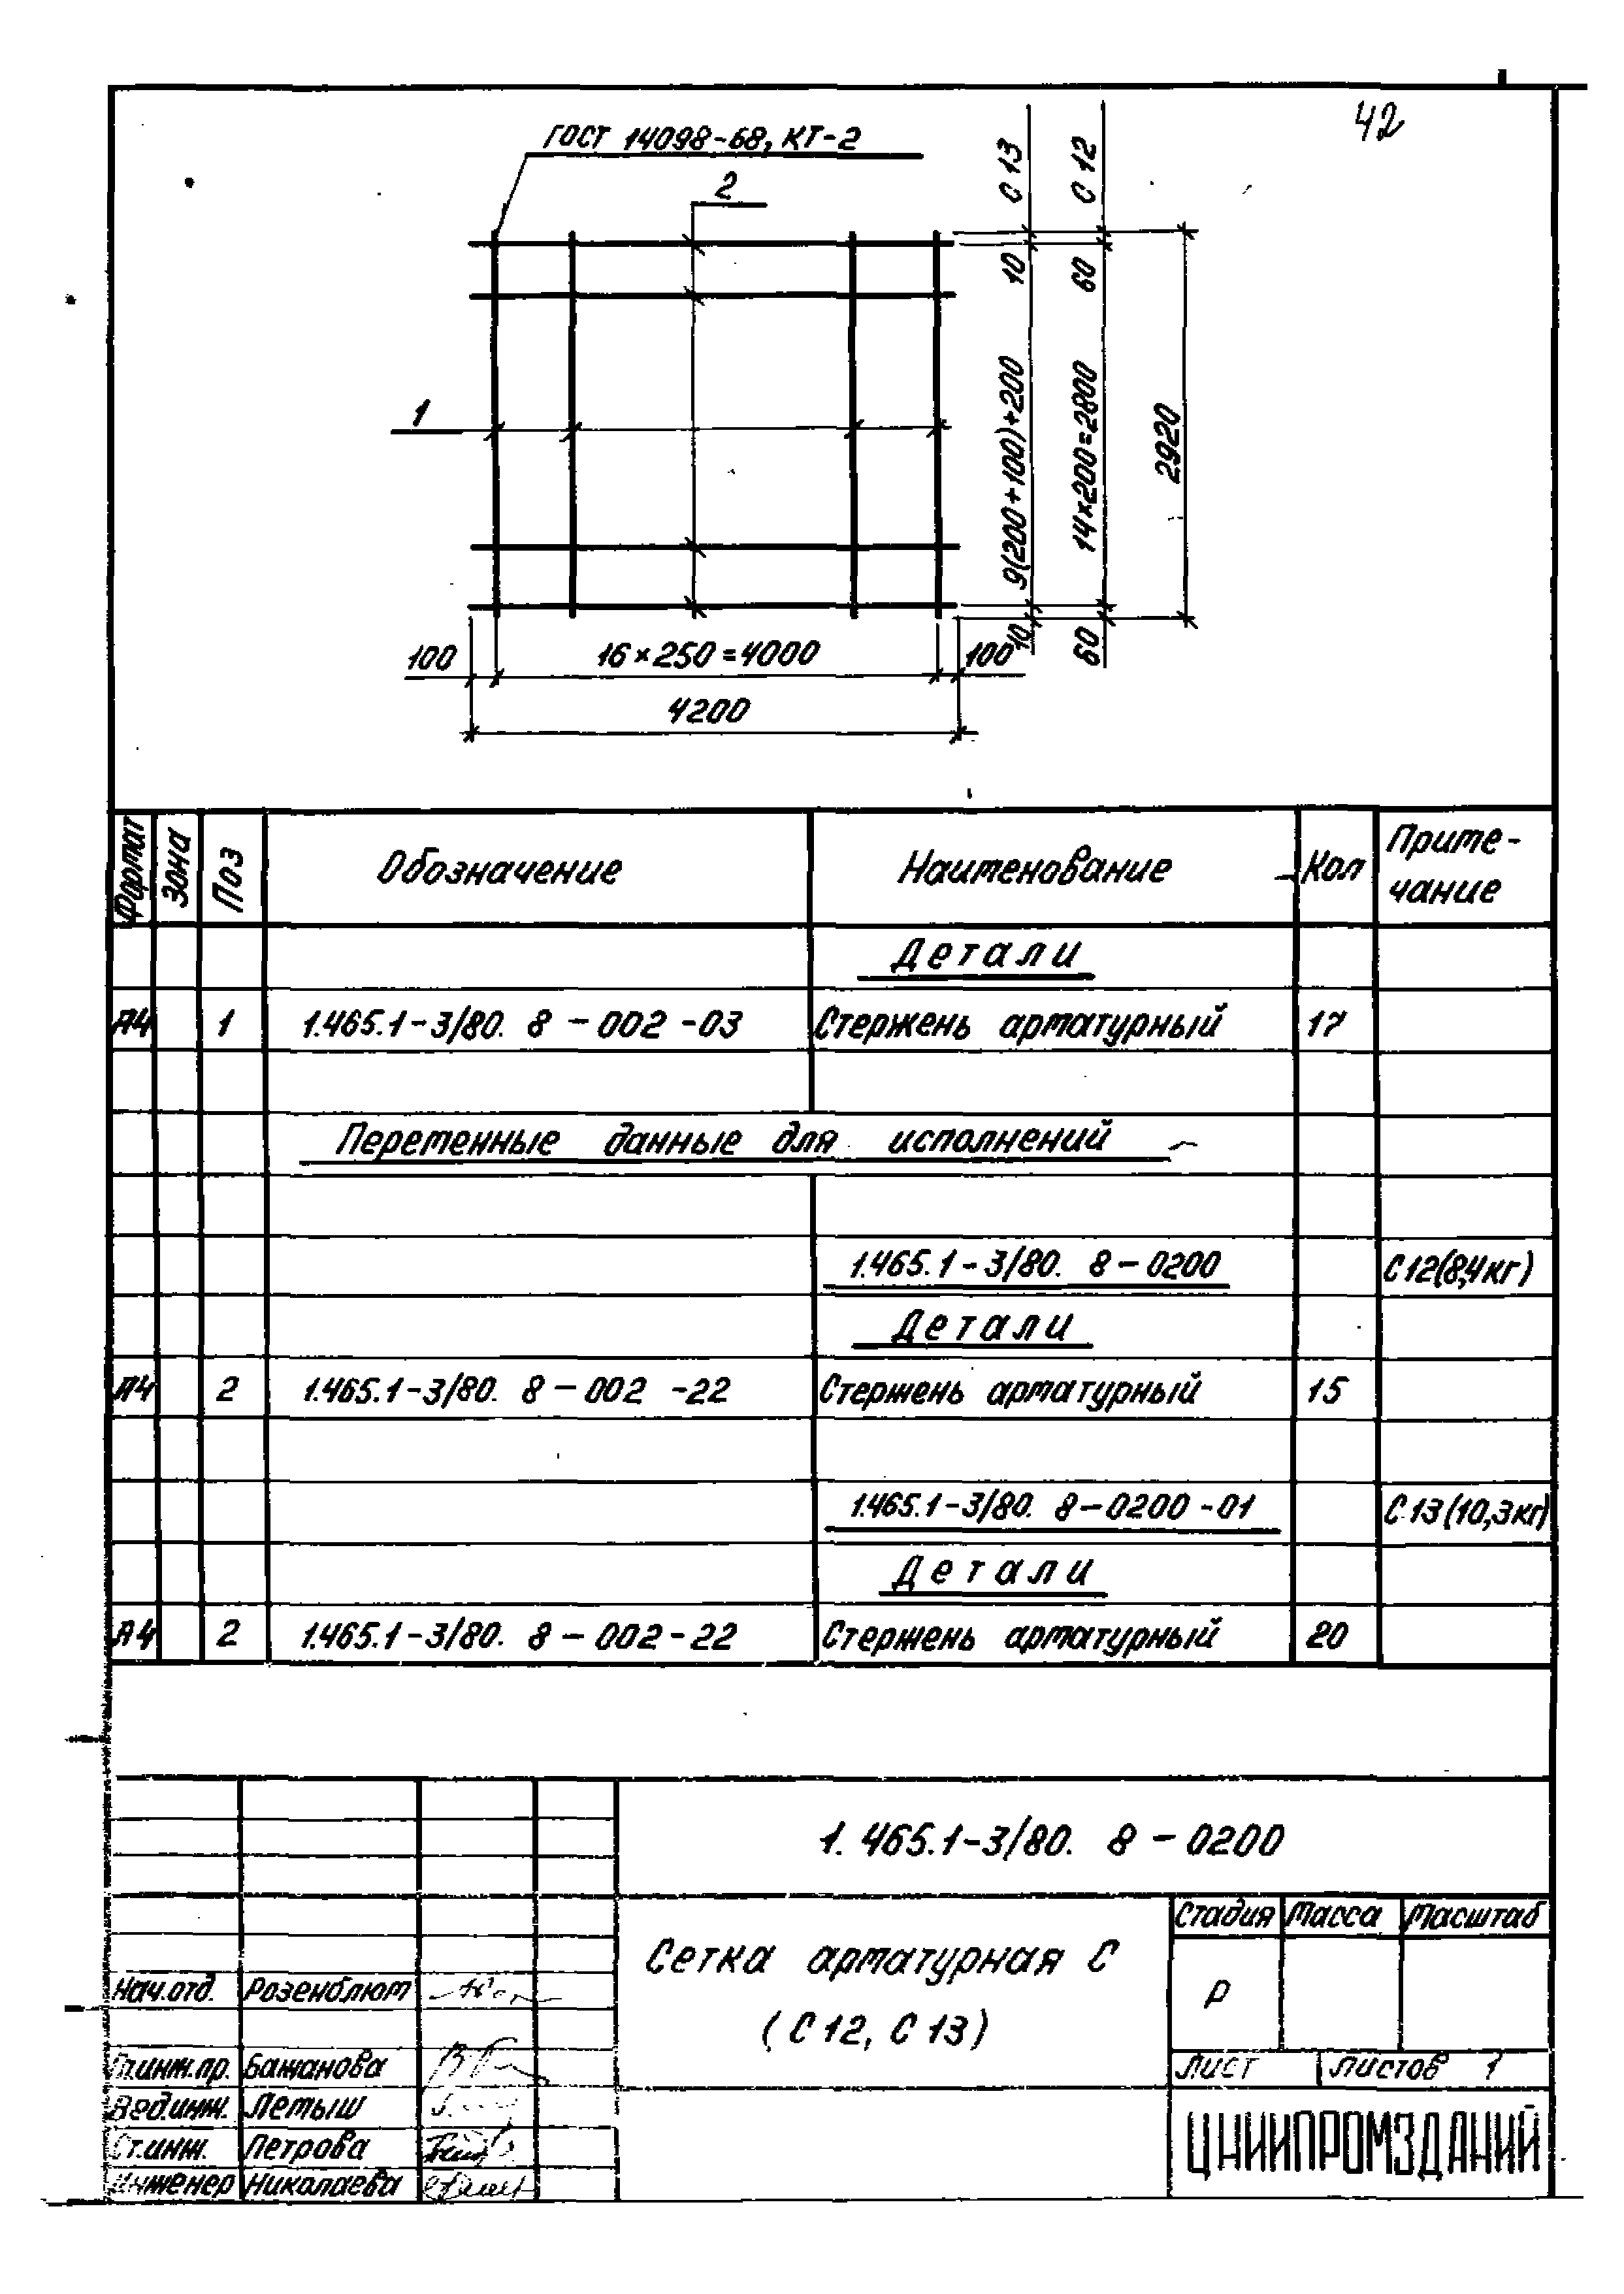 42
ГОСТ 14098-68, КТ-2
2
С 13
С 12
10
60
1
9(200+100)+200
14×200=2800
2920
10
60
100
16×250=4000
100
4200
Формат Зона Поз Обозначение Наименование Кол Приме-
чание
Детали
А4 1 1.465.1-3/80. 8-002-03 Стержень арматурный 17
Переменные данные для исполнений
1.465.1-3/80. 8-0200 С12(8,4кг)
Детали
А4 2 1.465.1-3/80. 8-002-22 Стержень арматурный 15
1.465.1-3/80. 8-0200-01 С13(10,3кг)
Детали
А4 2 1.465.1-3/80. 8-002-22 Стержень арматурный 20
1.465.1-3/80. 8-0200
Стадия Масса Масштаб
Сетка арматурная С
(С12, С13)
Р
Лист Листов 1
Нач.отд. Розенблюм
Гл.инж.пр. Бажанова
Вед.инж. Летыш
Ст.инж. Петрова
Инженер Николаева
ЦНИИПРОМЗДАНИЙ